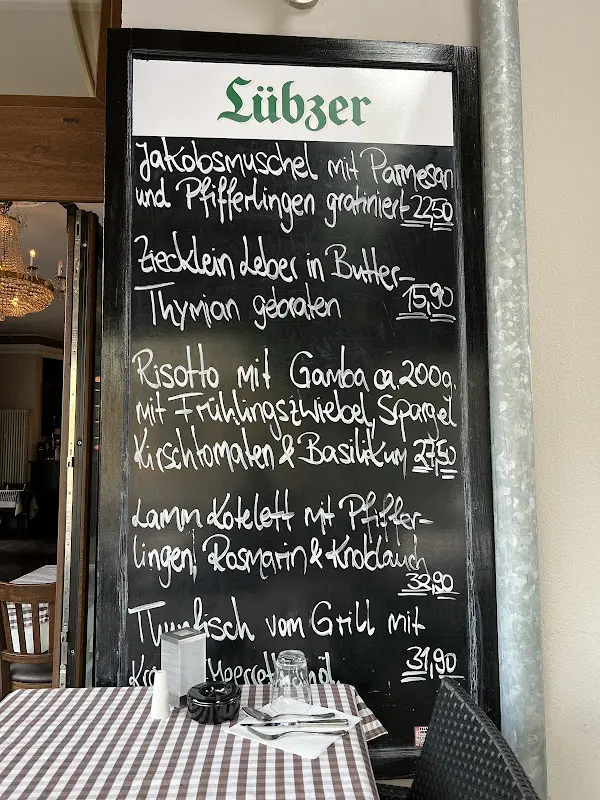 Lübzer
Jakobsmuschel mit Parmesan
und Pfifferlingen gratiniert 22,50
Ziecklein Leber in Butter-
Thymian gebraten 15,90
Risotto mit Gamba ca. 200g.
mit Frühlingszwiebel, Spargel
Kirschtomaten & Basilikum 27,50
Lamm Kotelett mit Pfiffer-
lingen, Rosmarin & Knoblauch
32,90
Thunfisch vom Grill mit
31,90